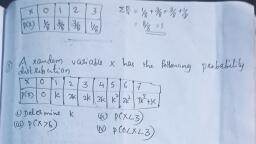 x 0 1 2 3 ΣPi = 1/8 + 3/8 + 3/8 + 1/8
P(x) 1/8 3/8 3/8 1/8 = 8/8 = 1
A random variable X has the following probability
distribution
x 0 1 2 3 4 5 6 7
P(x) 0 K 2K 2K 3K K² 2K² 7K²+K
(i) Determine K (ii) P(X<3)
(iii) P(X>6) (iv) P(0<X<3)